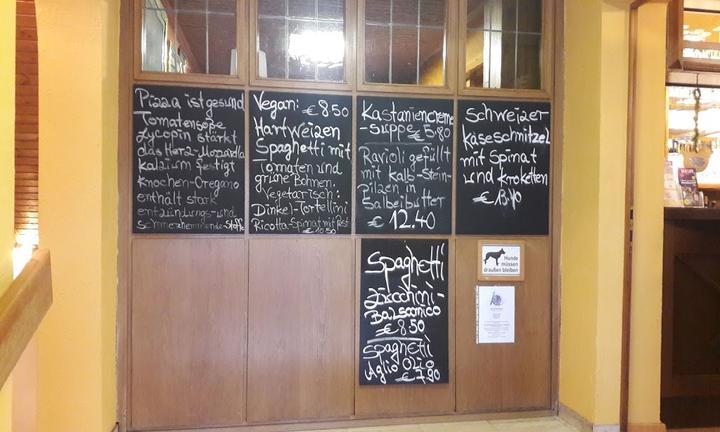 Pizza ist gesund
Tomatensoße
Lycopin stärkt
das Herz-Mozzarella
kalzium festigt
Knochen-Oregano
enthält stark
entzündungs-und
schmerzhemmende Stoffe
Vegan: € 8.50
Hartweizen
Spaghetti mit
Tomaten und
grüne Bohnen.
Vegetarisch:
Dinkel-Tortellini
Ricotta-Spinat mit
€ 10.50
Kastaniencreme
-suppe € 5.80
Ravioli gefüllt
mit Kalb-Stein-
Pilzen in
Salbeibutter
€ 12.40
Schweizer
Käseschnitzel
mit Spinat
und Kroketten
€
Spaghetti
Zucchini-
Balsamico
€ 8.50
Spaghetti
Aglio Olio
€ 7.90
Hunde
müssen
draußen bleiben